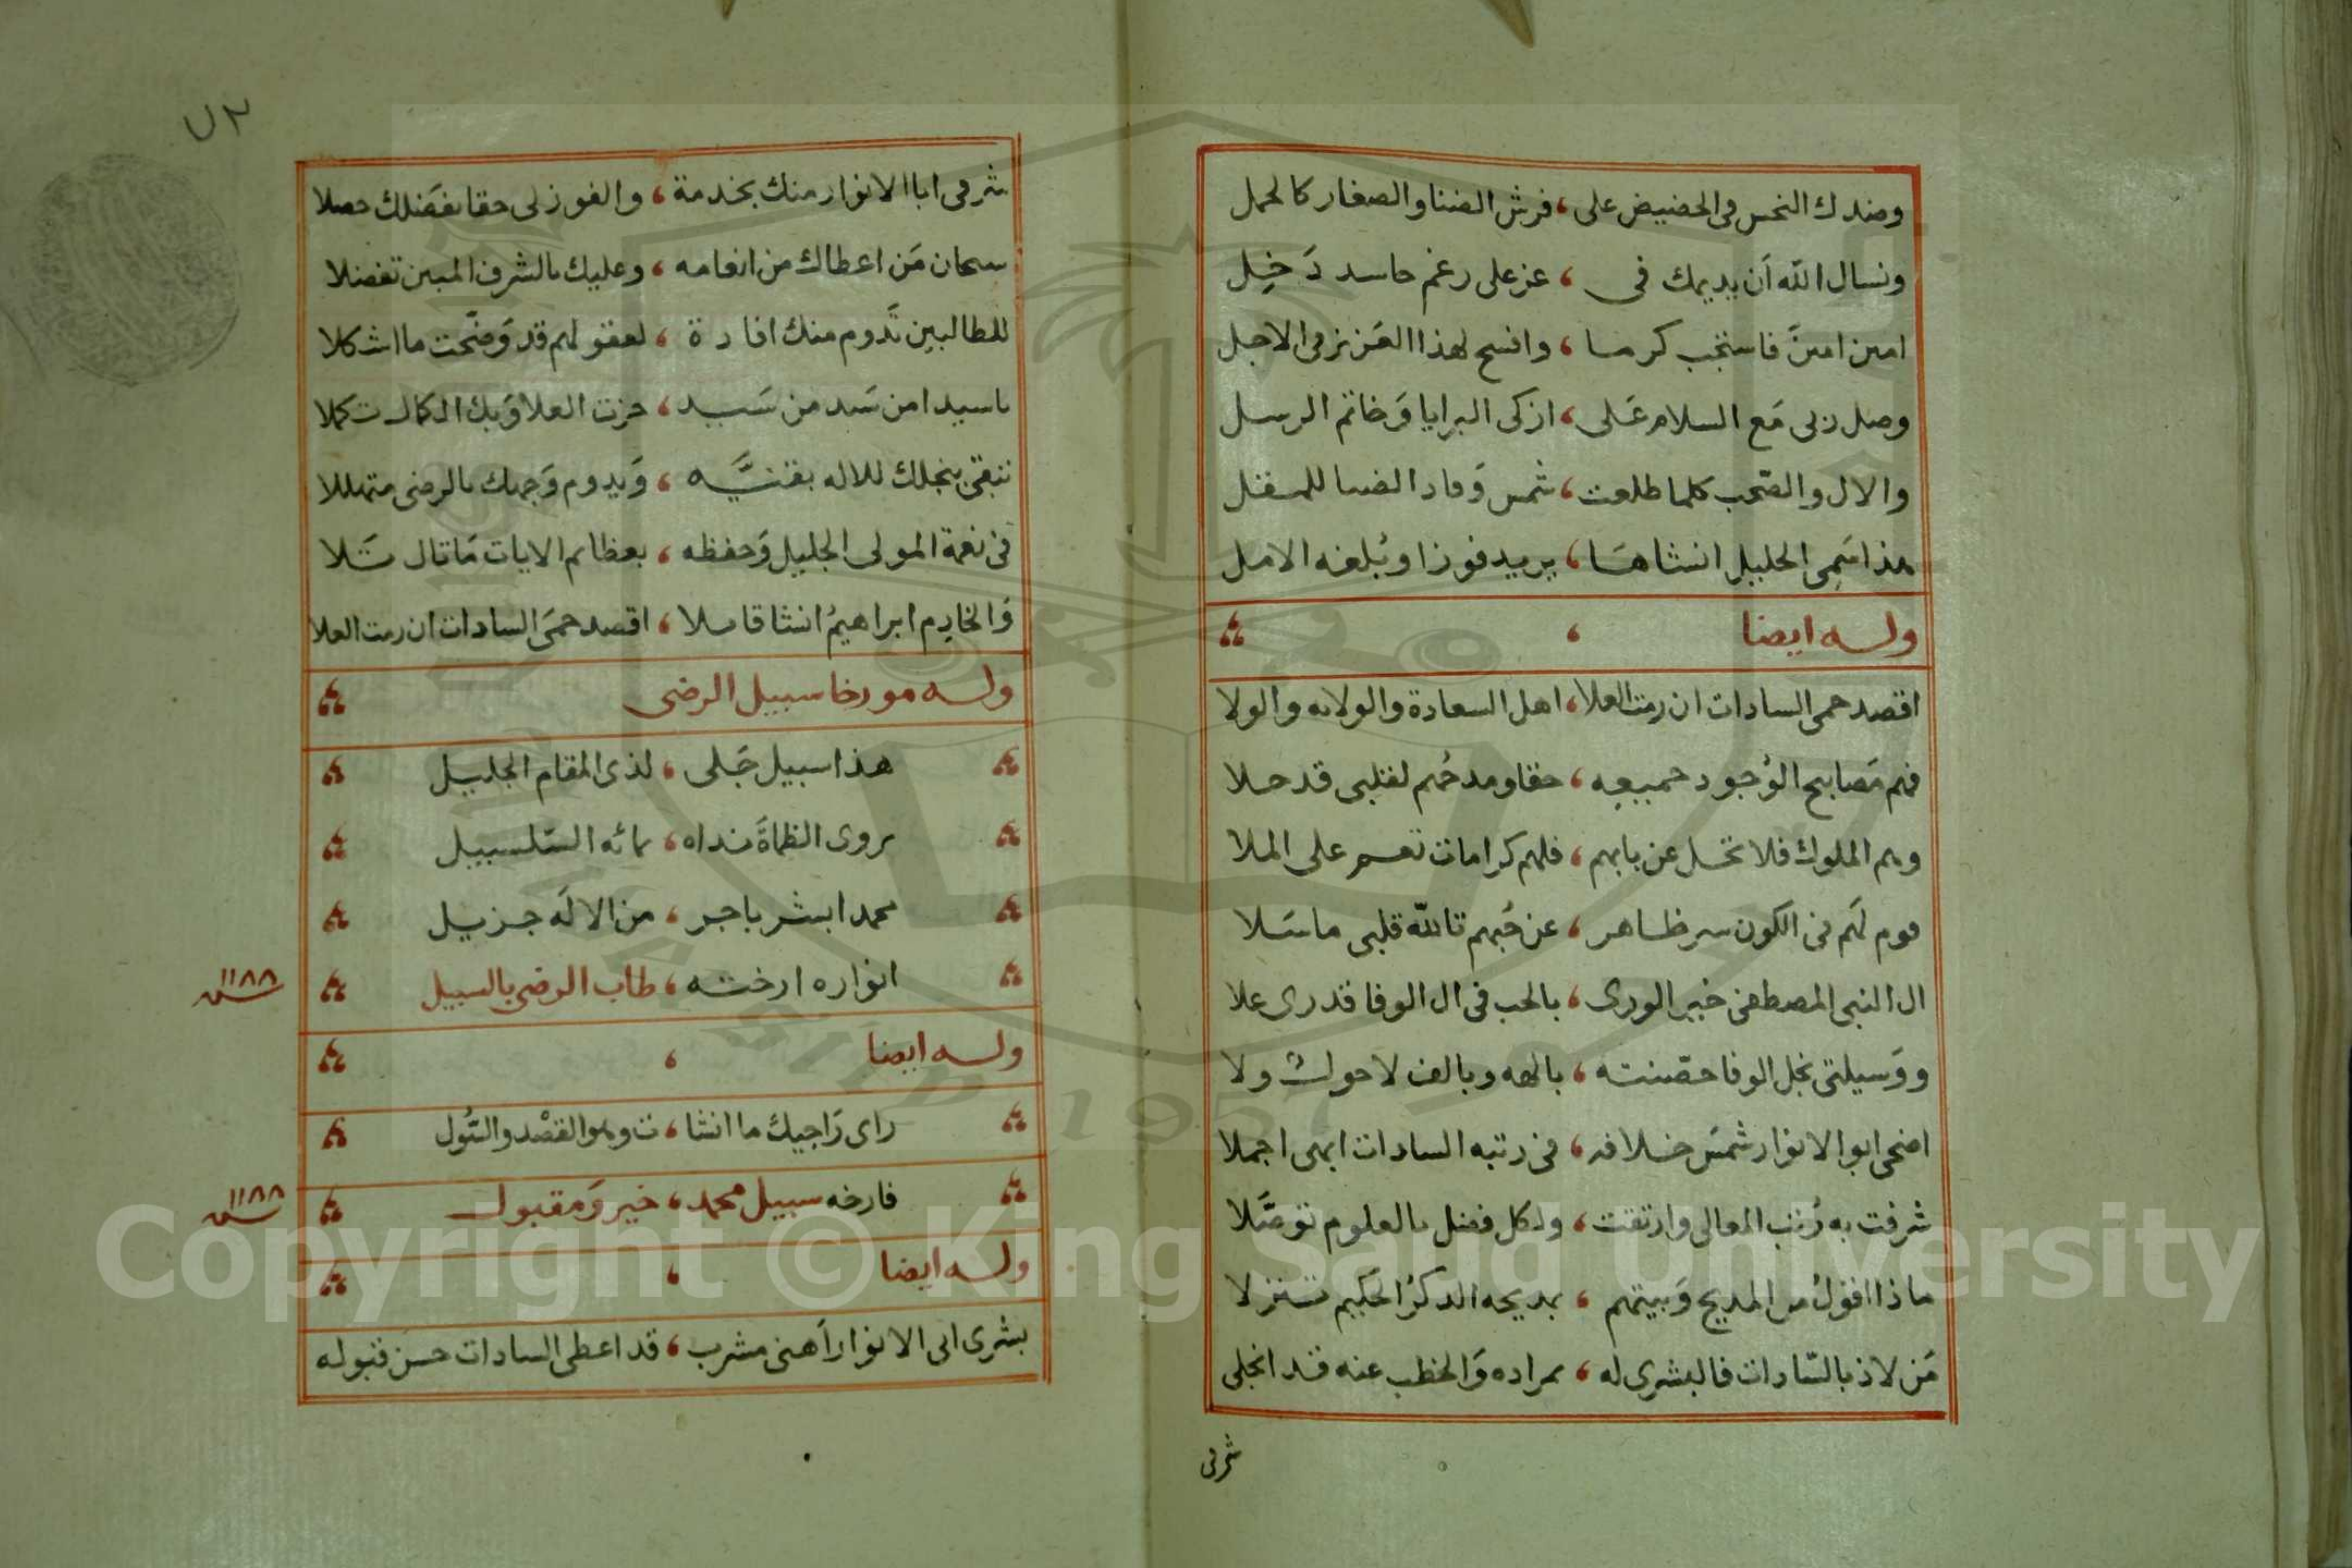 وضدك النحس فى الحضيض على ، فرش الضنا والصغار كالحمل
ونسال الله أن يديمك فى ، عز على رغم حاسد دَخِل
امين امينَ فاستجب كرما ، وافسح لهذا العَزيز فى الاجل
وصل ربى مَع السلام عَلى ، ازكى البرايا وَخاتم الرسل
والال والصَّحب كلما طلعت ، شمس وَماد الضيا للمقل
هذا سَمى الخليل انشاهَا ، يريد فوزا ويُلغه الامل
وله ايضا
اقصد حمى السادات ان رمت العلا ، اهل السعادة والولايه والولا
فهم مَصابيح الوُجود جميعِه ، حقا ومدحُهم لقلبى قد حلا
وهم الملوك فلا تحل عن بابهم ، فلهم كرامات تعم على الملا
قوم لَهم فى الكون سر ظاهر ، عن حُبهم تالله قلبى ما سَلا
ال النبى المصطفى خير الورى ، بالحب فى ال الوفا قدرى علا
ووَسيلتى نجل الوفا حصّنته ، بالهه وبالف لا حول ولا
اضحى ابو الانوار شمسَ خلافه ، فى رتبه السادات ابهى اجملا
شرفت به رُتب المعالى وارتقت ، ولكل فضل بالعلوم توصَّلا
ماذا اقولُ من المديح وَبيتهم ، بمديحه الذكرُ الحَكيم تنزلا
مَن لاذ بالسّادات فالبشرى له ، بمراده وَالخطب عنه قد انجلى
شرفى
٧٢
شرفى ابا الانوار منك بخدمة ، والفوز لى حقا بفَضلك حصلا
سبحان مَن اعطاك من انعامه ، وعليك بالشرف المبين تفضلا
للطالبين تَدوم منك افادة ، لعقولهم قد وَضّحت ما اشكلا
يا سيدا من سَيد من سَيد ، حزت العلا وَبك الكمال تكملا
تبقى بنجلك للاله بقنيَّه ، وَيدوم وَجهك بالرضى متهللا
فى نعمة المولى الجليل وَحفظه ، بعظائم الايات مَا تال تَلا
وَالخادِم ابراهيمُ انشا قايلا ، اقصد حمَى السادات ان رمت العلا
وله مورخا سبيل الرضى
هذا سبيل جَلى ، لذى المقام الجليل
يروى الظماةَ نداه ، بمائه السّلسبيل
محمد ابشر باجر ، من الالَه جزيل
انواره ارخته ، طاب الرضى بالسبيل
سنة ١١٨٨
وله ايضا
راى رَاجيك ما انشا ، ت وهو القصْد والسُّول
فارخه سبيل محمد ، خير وَمقبول
سنة ١١٨٨
وله ايضا
بشرى ابى الانوار أهنى مشرب ، قد اعطى السادات حسنَ قبوله
Copyright © King Saud University
1957